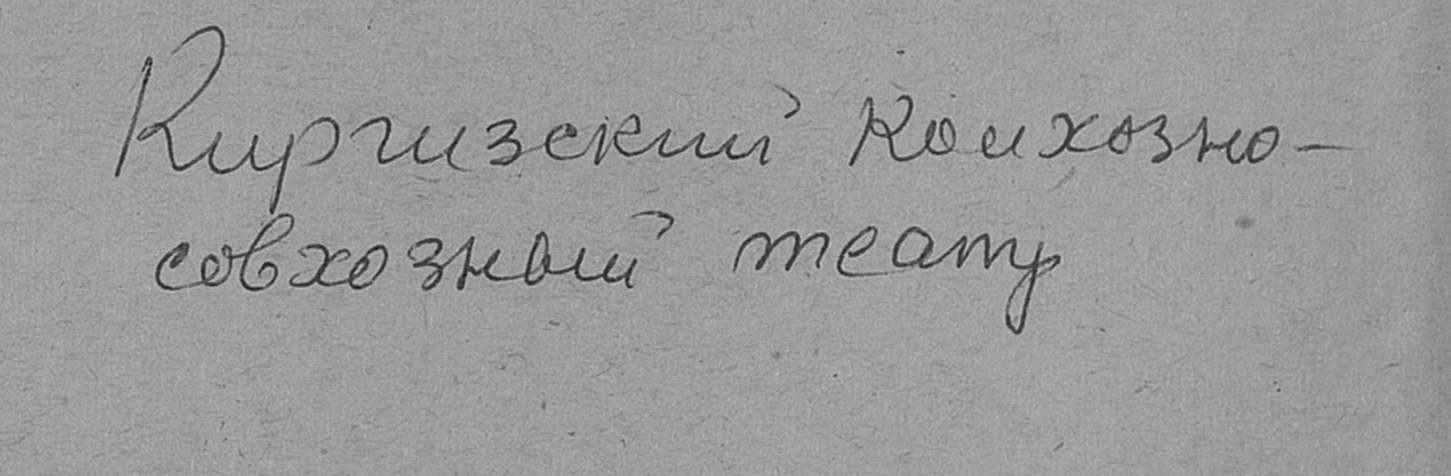 Киргизский Колхозно-
совхозный театр